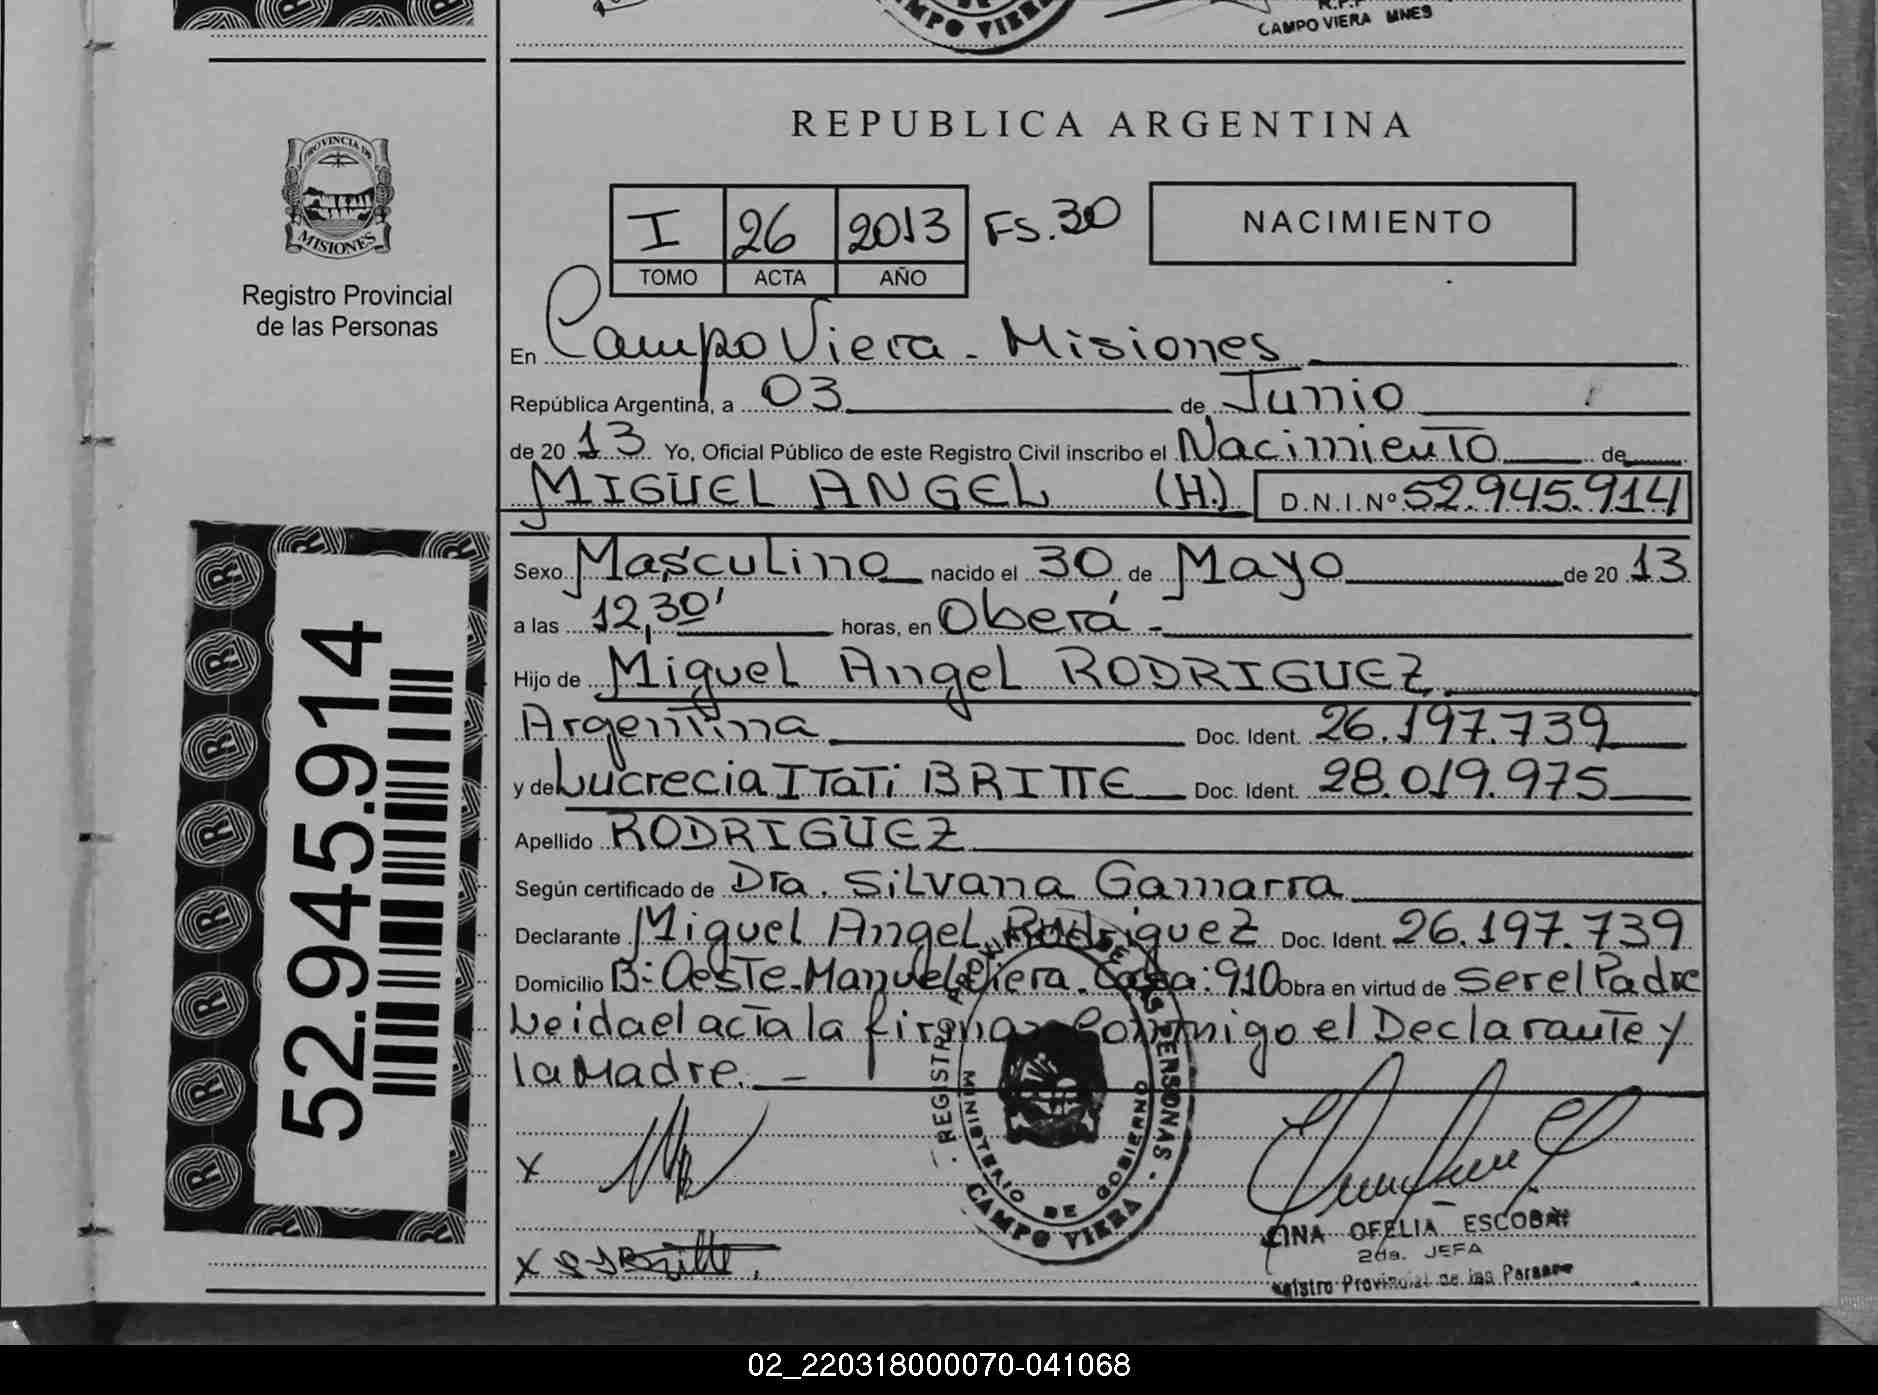 CAMPO VIERA
R.P.P
CAMPO VIERA MNES
PROVINCIA DE
MISIONES
Registro Provincial
de las Personas
REPUBLICA ARGENTINA
I 26 2013 Fs.30 NACIMIENTO
TOMO ACTA AÑO
En Campo Viera - Misiones
República Argentina, a 03 de Junio
de 2013 Yo, Oficial Público de este Registro Civil inscribo el Nacimiento de
MIGUEL ANGEL (H.) D.N.I.Nº 52.945.914
Sexo Masculino nacido el 30 de Mayo de 2013
a las 12,30' horas, en Oberá -
Hijo de Miguel Angel RODRIGUEZ
Argentina Doc. Ident. 26.197.739
y de Lucrecia ITaTi BRITTE Doc. Ident. 28.019.975
Apellido RODRIGUEZ
Según certificado de Dra. Silvana Gamarra
Declarante Miguel Angel Rodriguez Doc. Ident. 26.197.739
Domicilio B: Oeste-Manuel Viera. Casa: 910 Obra en virtud de Ser el Padre
Leida el acta la firman Conmigo el Declarante y
la Madre. -
52.945.914
REGISTRO PROVINCIAL DE LAS PERSONAS
MINISTERIO DE GOBIERNO
CAMPO VIERA
X
X Britte
LINA OFELIA ESCOBAR
2da. JEFA
Registro Provincial de las Personas
02_220318000070-041068